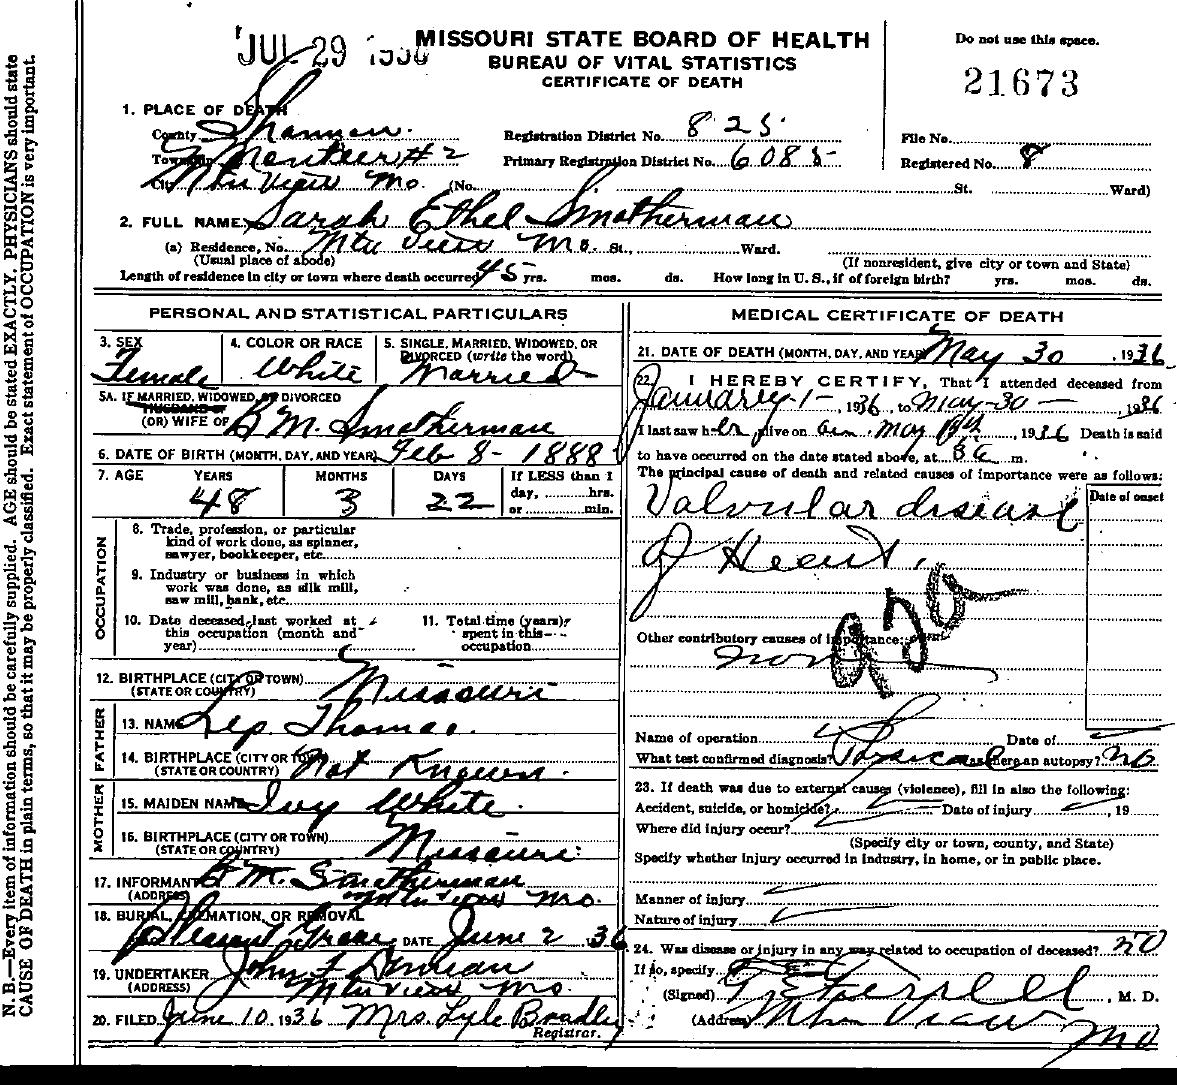 N. B.—Every item of information should be carefully supplied. AGE should be stated EXACTLY. PHYSICIANS should state
CAUSE OF DEATH in plain terms, so that it may be properly classified. Exact statement of OCCUPATION is very important.
JUL 29 1936
MISSOURI STATE BOARD OF HEALTH
BUREAU OF VITAL STATISTICS
CERTIFICATE OF DEATH
Do not use this space.
21673
1. PLACE OF DEATH
County Shannon. Registration District No. 825 File No.
Township Montier #2 Primary Registration District No. 6085 Registered No. 8
City Mtn View Mo. (No. St. Ward)
2. FULL NAME Sarah Ethel Smotherman
(a) Residence, No. Mtn View Mo. St., Ward.
(Usual place of abode) (If nonresident, give city or town and State)
Length of residence in city or town where death occurred 45 yrs. mos. ds. How long in U. S., if of foreign birth? yrs. mos. ds.
PERSONAL AND STATISTICAL PARTICULARS
3. SEX Female
4. COLOR OR RACE White
5. SINGLE, MARRIED, WIDOWED, OR DIVORCED (write the word) Married
5A. IF MARRIED, WIDOWED, OR DIVORCED
HUSBAND OF
(OR) WIFE OF B M. Smotherman
6. DATE OF BIRTH (MONTH, DAY, AND YEAR) Feb 8- 1888
7. AGE YEARS MONTHS DAYS If LESS than 1
48 3 22 day, hrs.
or min.
OCCUPATION
8. Trade, profession, or particular
kind of work done, as spinner,
sawyer, bookkeeper, etc.
9. Industry or business in which
work was done, as silk mill,
saw mill, bank, etc.
10. Date deceased last worked at
this occupation (month and
year)
11. Total time (years)
spent in this
occupation
12. BIRTHPLACE (CITY OR TOWN)
(STATE OR COUNTRY) Missouri
FATHER
13. NAME Lep. Thomas.
14. BIRTHPLACE (CITY OR TOWN)
(STATE OR COUNTRY) Not Known.
MOTHER
15. MAIDEN NAME Ivy White.
16. BIRTHPLACE (CITY OR TOWN)
(STATE OR COUNTRY) Missouri
17. INFORMANT B M. Smotherman
(ADDRESS) Mtn View Mo.
18. BURIAL, CREMATION, OR REMOVAL
Pleasant Grove DATE June 2, 36
19. UNDERTAKER John F
(ADDRESS) Mtn View Mo.
20. FILED June 10, 1936 Mrs. Lyle Bradley
Registrar.
MEDICAL CERTIFICATE OF DEATH
21. DATE OF DEATH (MONTH, DAY, AND YEAR) May 30, 1936
22. I HEREBY CERTIFY, That I attended deceased from
January-1-, 1936, to May-30-, 1936
I last saw her alive on May 19th, 1936 Death is said
to have occurred on the date stated above, at m.
The principal cause of death and related causes of importance were as follows:
Date of onset
Valvular disease
of Heart.
92a
Other contributory causes of importance:
none
Name of operation Date of
What test confirmed diagnosis? Physical Was there an autopsy? no
23. If death was due to external causes (violence), fill in also the following:
Accident, suicide, or homicide? Date of injury , 19
Where did injury occur?
(Specify city or town, county, and State)
Specify whether injury occurred in industry, in home, or in public place.
Manner of injury
Nature of injury
24. Was disease or injury in any way related to occupation of deceased? no
If so, specify
(Signed) , M. D.
(Address) Mtn View Mo